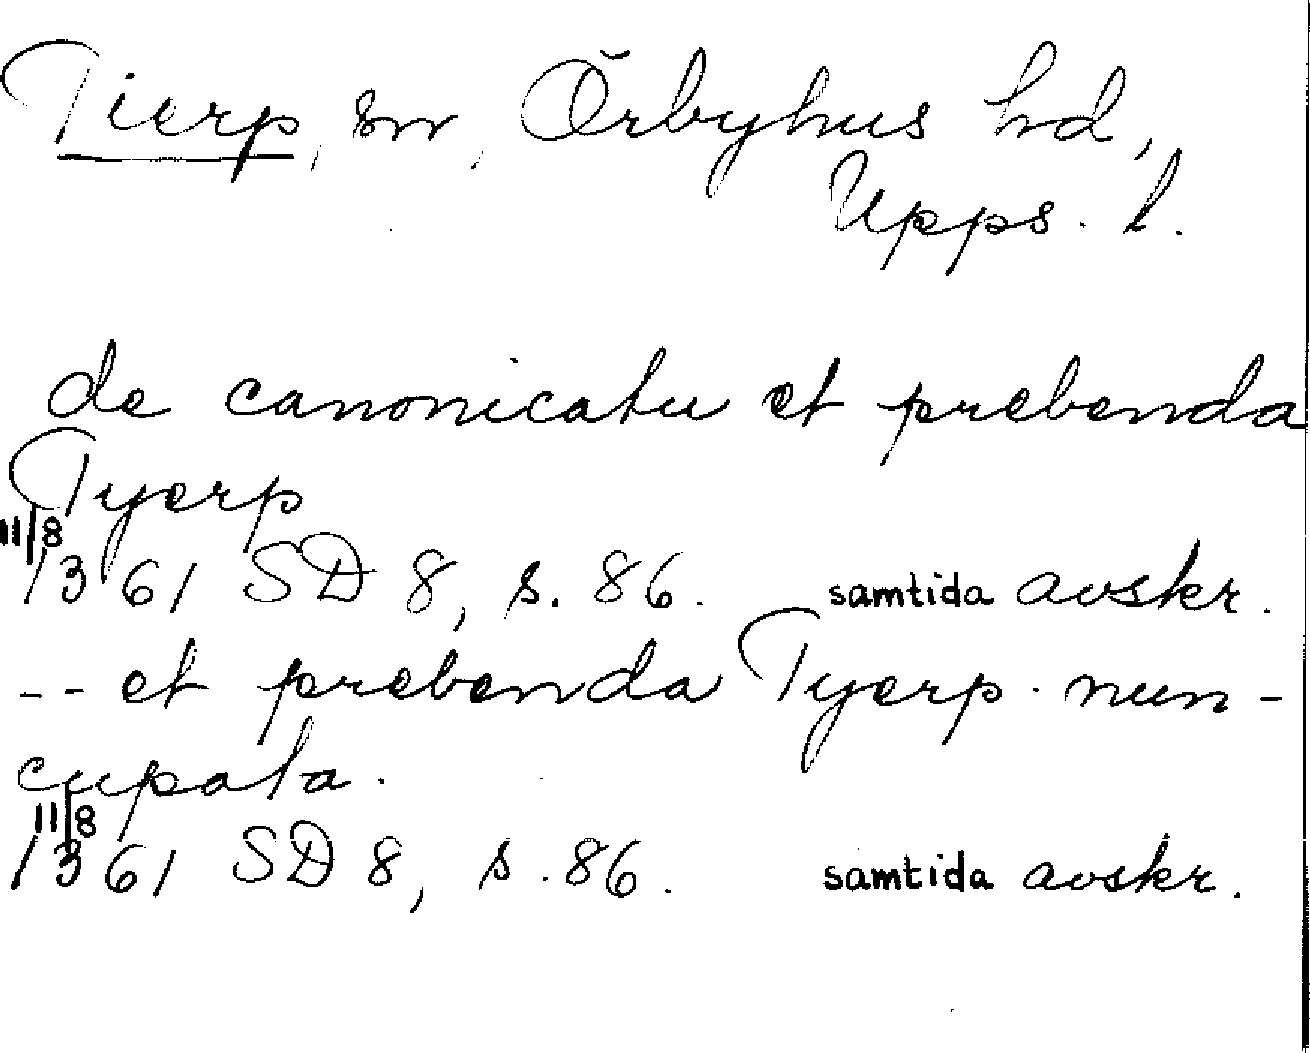 Tierp, sn, Örbyhus hd,
Upps. l.
de canonicatu et prebenda
Tyerp
11/8
1361 SD 8, s. 86. samtida avskr.
-- et prebenda Tyerp nun-
cupata.
11/8
1361 SD 8, s. 86. samtida avskr.